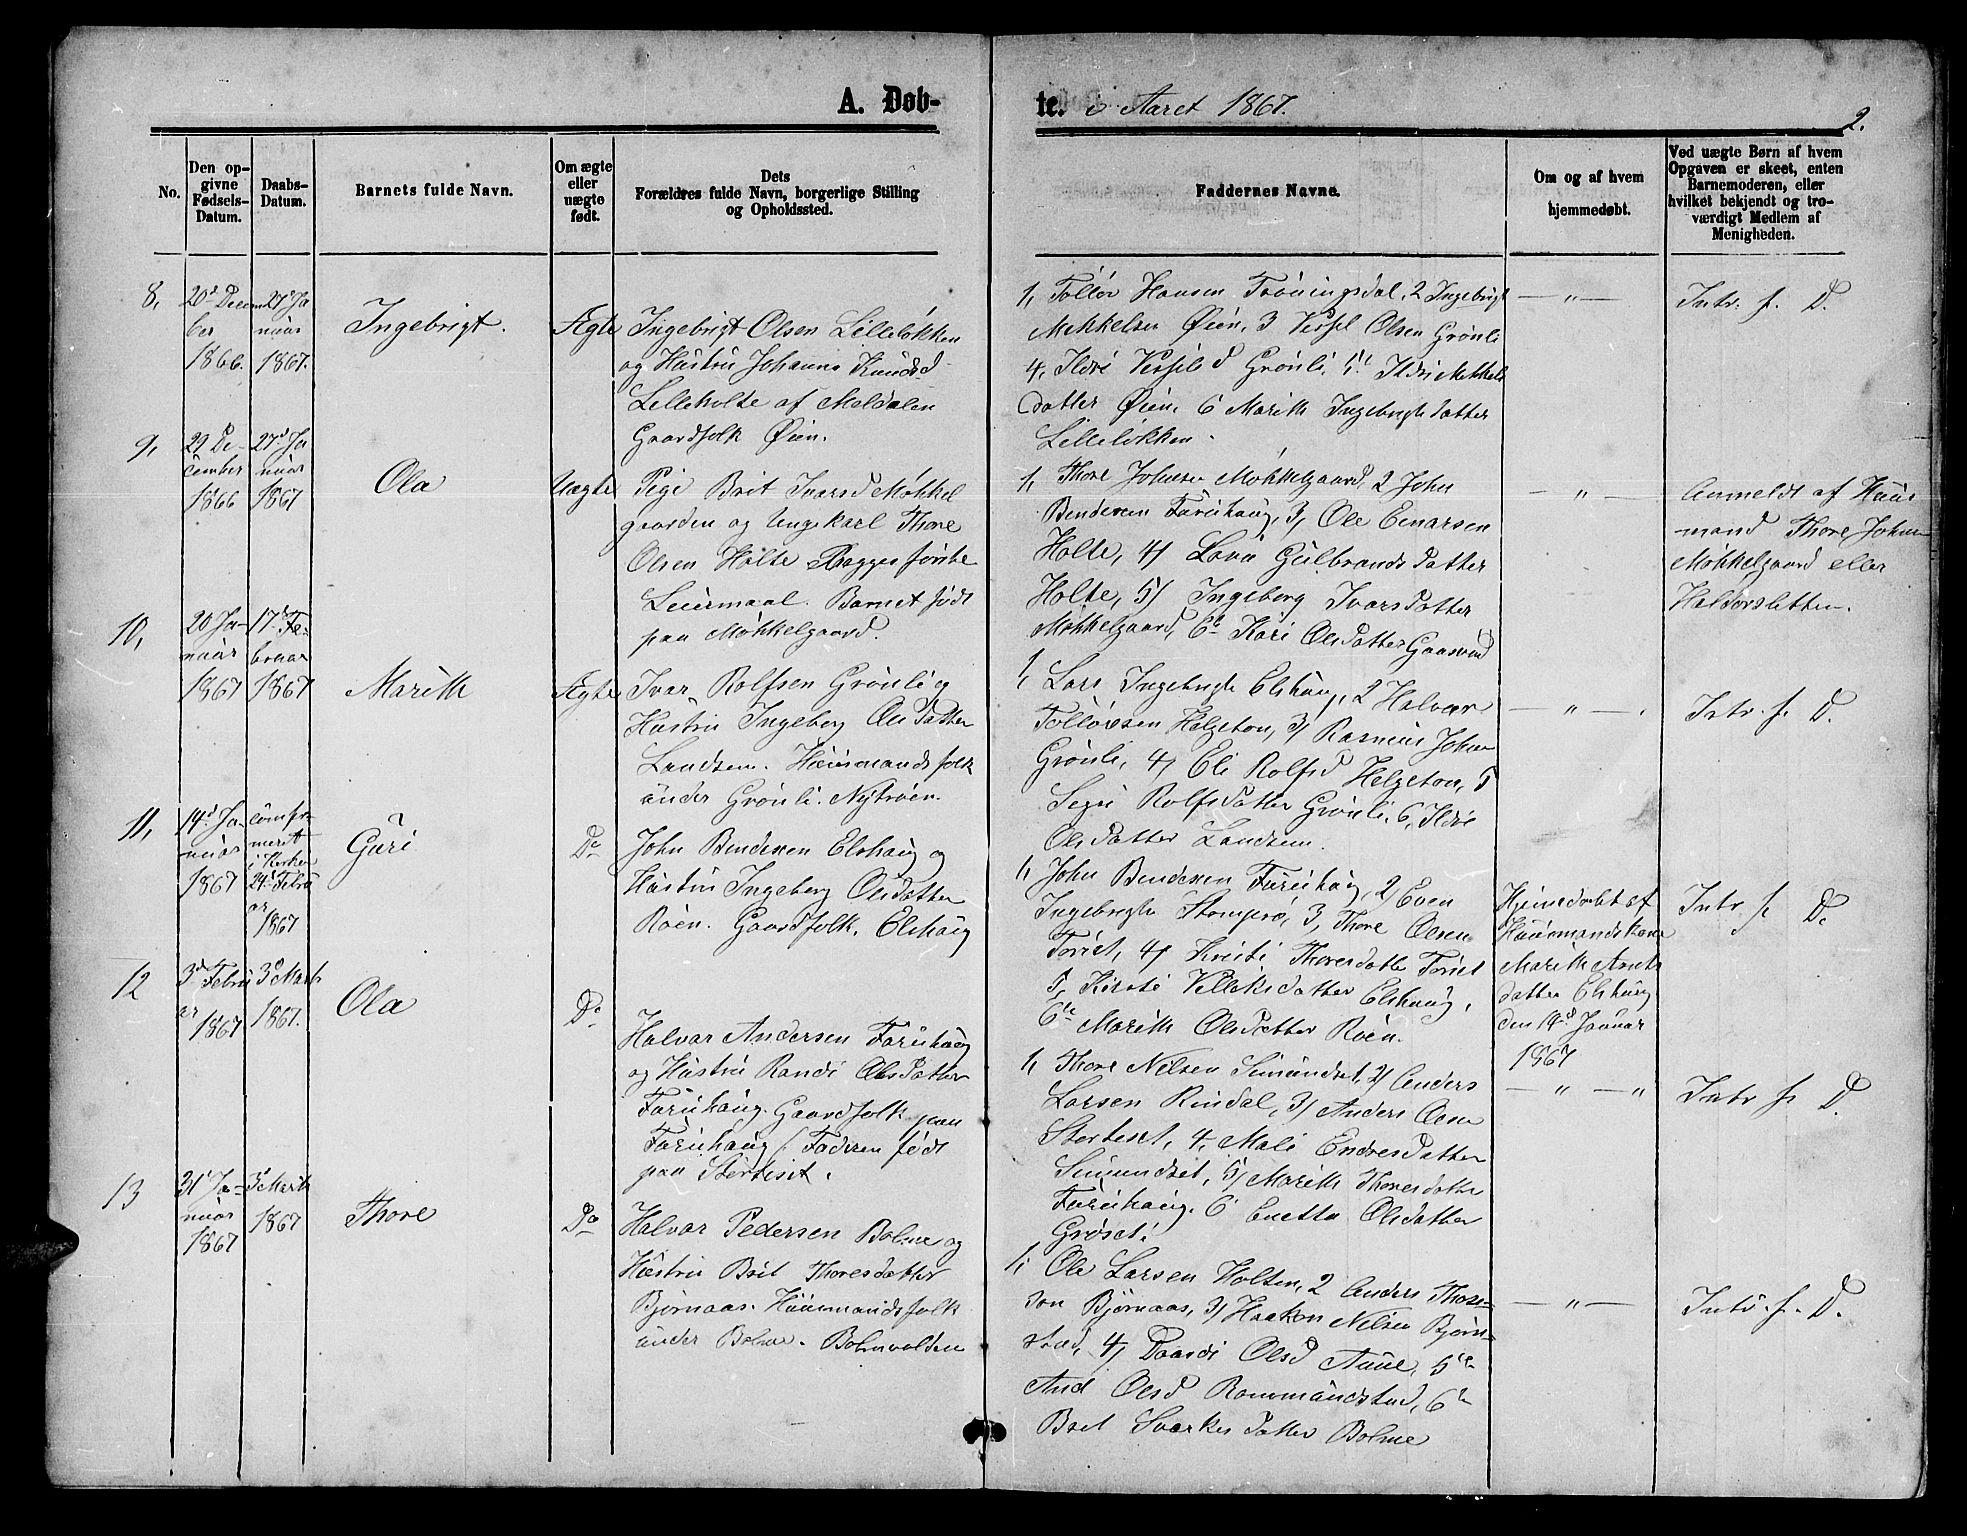 A. Døb-
te. i Aaret 1867.
2.
No.
Den op-
givne
Fødsels-
Datum.
Daabs-
Datum.
Barnets fulde Navn.
Om ægte
eller
uægte
født.
Dets
Forældres fulde Navn, borgerlige Stilling
og Opholdssted.
Faddernes Navne.
Om og af hvem
hjemmedøbt.
Ved uægte Børn af hvem
Opgaven er skeet, enten
Barnemoderen, eller
hvilket bekjendt og tro-
værdigt Medlem af
Menigheden.
8,
20d Decem
ber
1866.
27d Ja
nuar
1867.
Ingebrigt.
Ægte
Ingebrigt Olsen Lilleløkken
og Hustru Johanna Knudsd
Lilleholte af Meldalen
Gaardfolk Øien.
1, Tollov Hansen Trøningsdal, 2 Ingebrigt
Mekkelsen Øien, 3 Vessel Olsen Grønli
4, Ildri Vesseld Grønli, 5, Ildri Mekkels
datter Øien, 6 Marith Ingebrigtsdatter
Lilleløkken.
— " —
Intr. f. D.
9,
29 De-
cember
1866
27d Ja
nuar
1867
Ola
Uægte
Pige Brit Ivarsd Møkkel
gaarden og Ungekarl Thore
Olsen Holte Begges første
Leiermaal. Barnet født
paa Møkkelgaard.
1, Thore Johnsen Møkkelgaard, 2 John
Bendixen Furuhaug, 3, Ole Einarsen
Holte, 4, Lava Gulbrandsdatter
Holte, 5, Ingeborg Ivarsdatter
Møkkelgaard, 6 Kari Olsdatter Gaasvand
— " —
Anmeldt af Huus
mand Thore Johns
Møkkelgaard eller
Haldorsletten.
10,
20 Ja-
nuar
1867
17d Fe-
bruar
1867
Marith
Ægte
Ivar Rolfsen Grønli og
Hustru Ingeborg Olsdatter
Landsem. Huusmandsfolk
under Grønli. Nytrøen.
1, Lars Ingebrigts Elshaug, 2 Halvar
Tollovsen Helgeton, 3, Rasmus Johns
Grønli, 4, Eli Rolfsd Helgeton, 5
Segri Rolfsdatter Grønli, 6, Ildri
Olsdatter Landsem.
— " —
Intr. f. D.
11,
14d Ja-
nuar
1867
comfir-
meret
i Kirken
24d Febru
ar
1867
Guri
Do
John Bendixen Elshaug og
Hustru Ingeborg Olsdatter
Røen. Gaardfolk. Elshaug
1, John Bendixen Furuhaug, 2, Even
Ingebrigts Stomprø, 3, Thore Olsen
Toriset, 4, Kristi Thoresdatte Toriset
5, Kirsti Villiksdatter Elshaug,
6te Marith Olsdatter Røen.
Hjemedøbt af
Huusmandskone
Marith Arnts
datter Elshaug
den 14d Januar
1867
Intr f. D.
12
3d Febru
ar
1867
3d Marts
1867.
Ola
Do
Halvar Andersen Furuhaug
og Hustru Randi Olsdatter
Furuhaug. Gaardfolk paa
Furuhaug (Faderen født
paa Størteset.
1, Thore Nilsen Simundset, 2, Anders
Larsen Rindal, 3, Anders Olsen
Størteset, 4, Mali Endresdatter
Simundset, 5, Marith Thoresdatter
Furuhaug, 6 Enetta Olsdatter
Grøset.
— " — "
Intr f. D.
13
31d Ja-
nuar
1867
3d Marts
1867
Thore
Do
Halvar Pedersen Bolme og
Hustru Brit Thoresdatter
Bjørnaas. Huusmandsfolk
under Bolme. Bolmvolden
1, Ole Larsen Holten, 2 Anders Thore-
son Bjørnaas, 3, Haakon Nilsen Bjørn-
stad, 4, Daardi Olsd Aune, 5te
And Olsd Rommundstad, 6te
Brit Sverkesdatter Bolme
— " —
Intr. f. D.